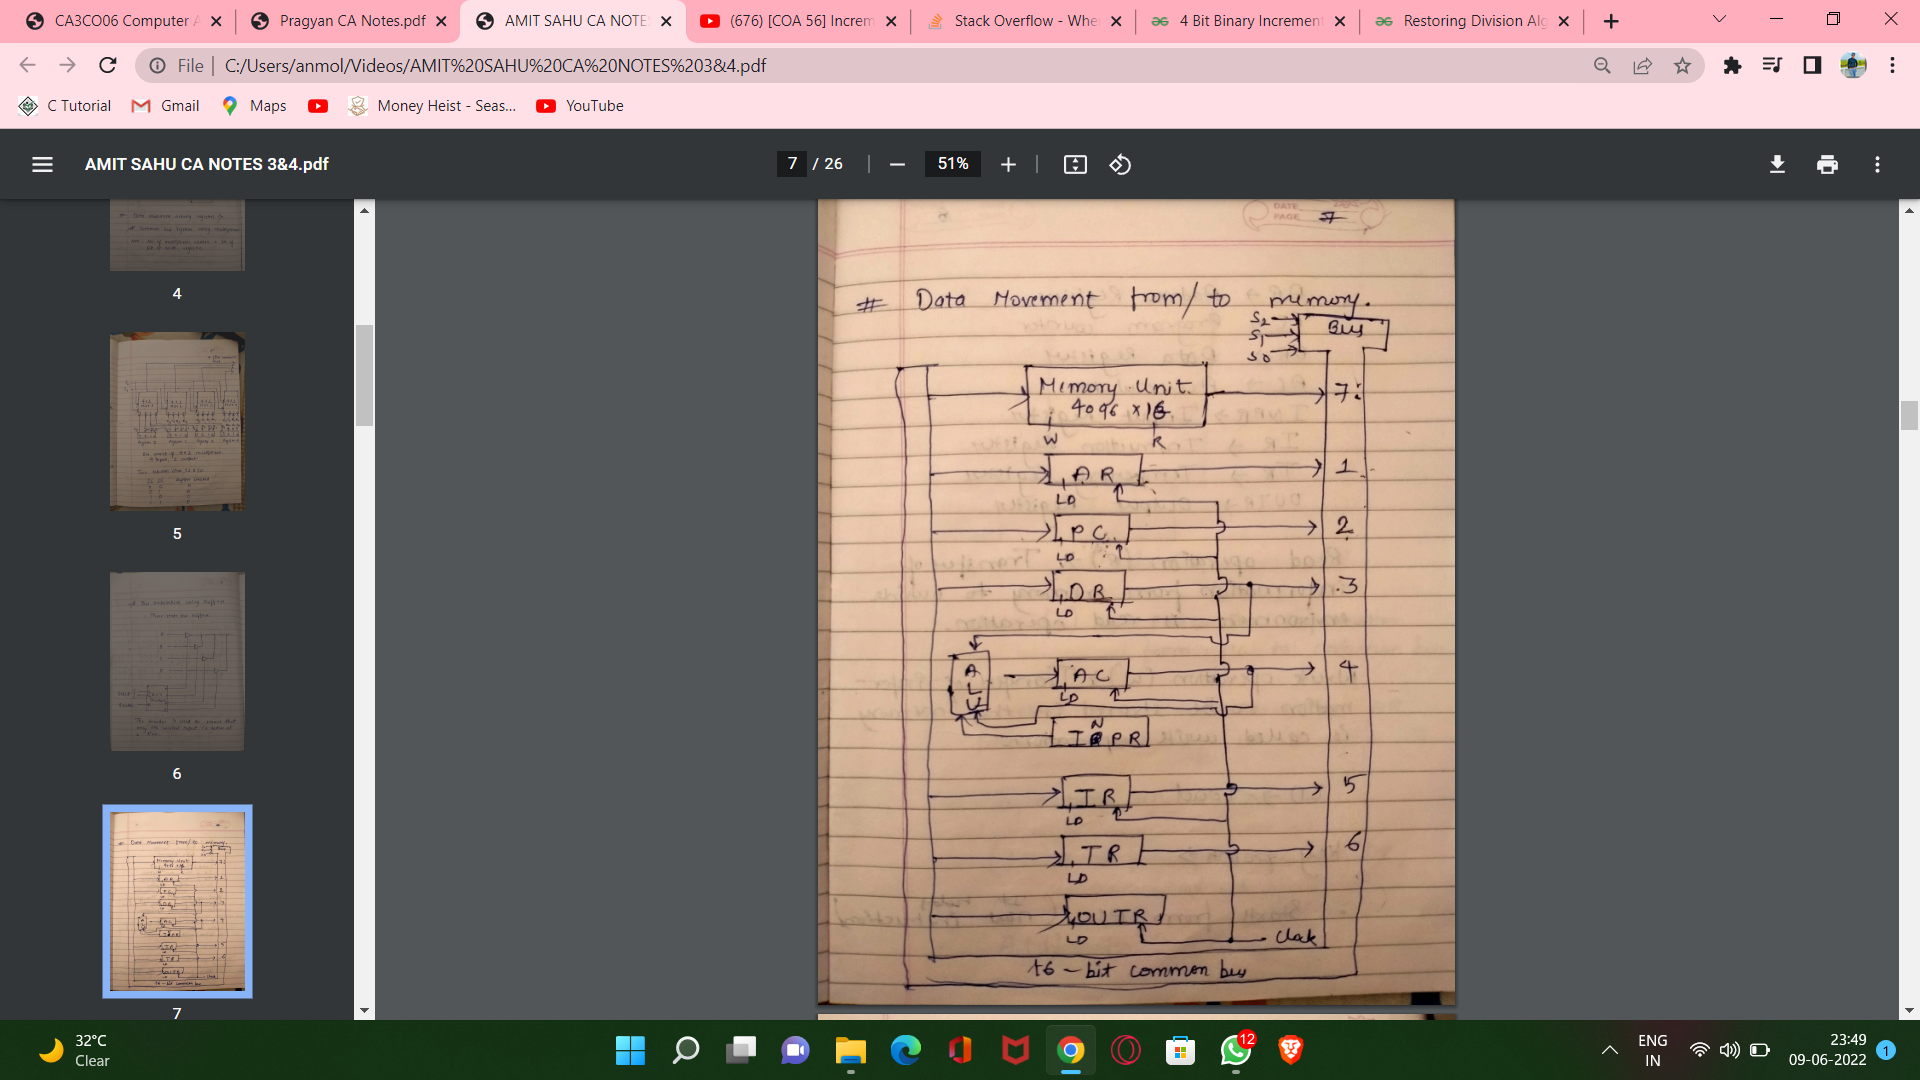 CA3CO06 Computer A
Pragyan CA Notes.pdf
AMIT SAHU CA NOTE
(676) [COA 56] Increm
Stack Overflow - Whe
4 Bit Binary Increment
Restoring Division Alg
File
C:/Users/anmol/Videos/AMIT%20SAHU%20CA%20NOTES%203&4.pdf
C Tutorial
Gmail
Maps
Money Heist - Seas...
YouTube
AMIT SAHU CA NOTES 3&4.pdf
7 / 26
51%
4
5
6
7
DATE
PAGE 7
# Data Movement from/to memory.
S2
S1
S0
Bus
Memory Unit
4096 x 16
7
W
R
AR
1
LD
PC
2
LD
DR
3
LD
ALU
AC
4
LD
INPR
IR
5
LD
TR
6
LD
OUTR
LD
Clock
16-bit common bus
32°C
Clear
12
ENG
IN
23:49
09-06-2022
1